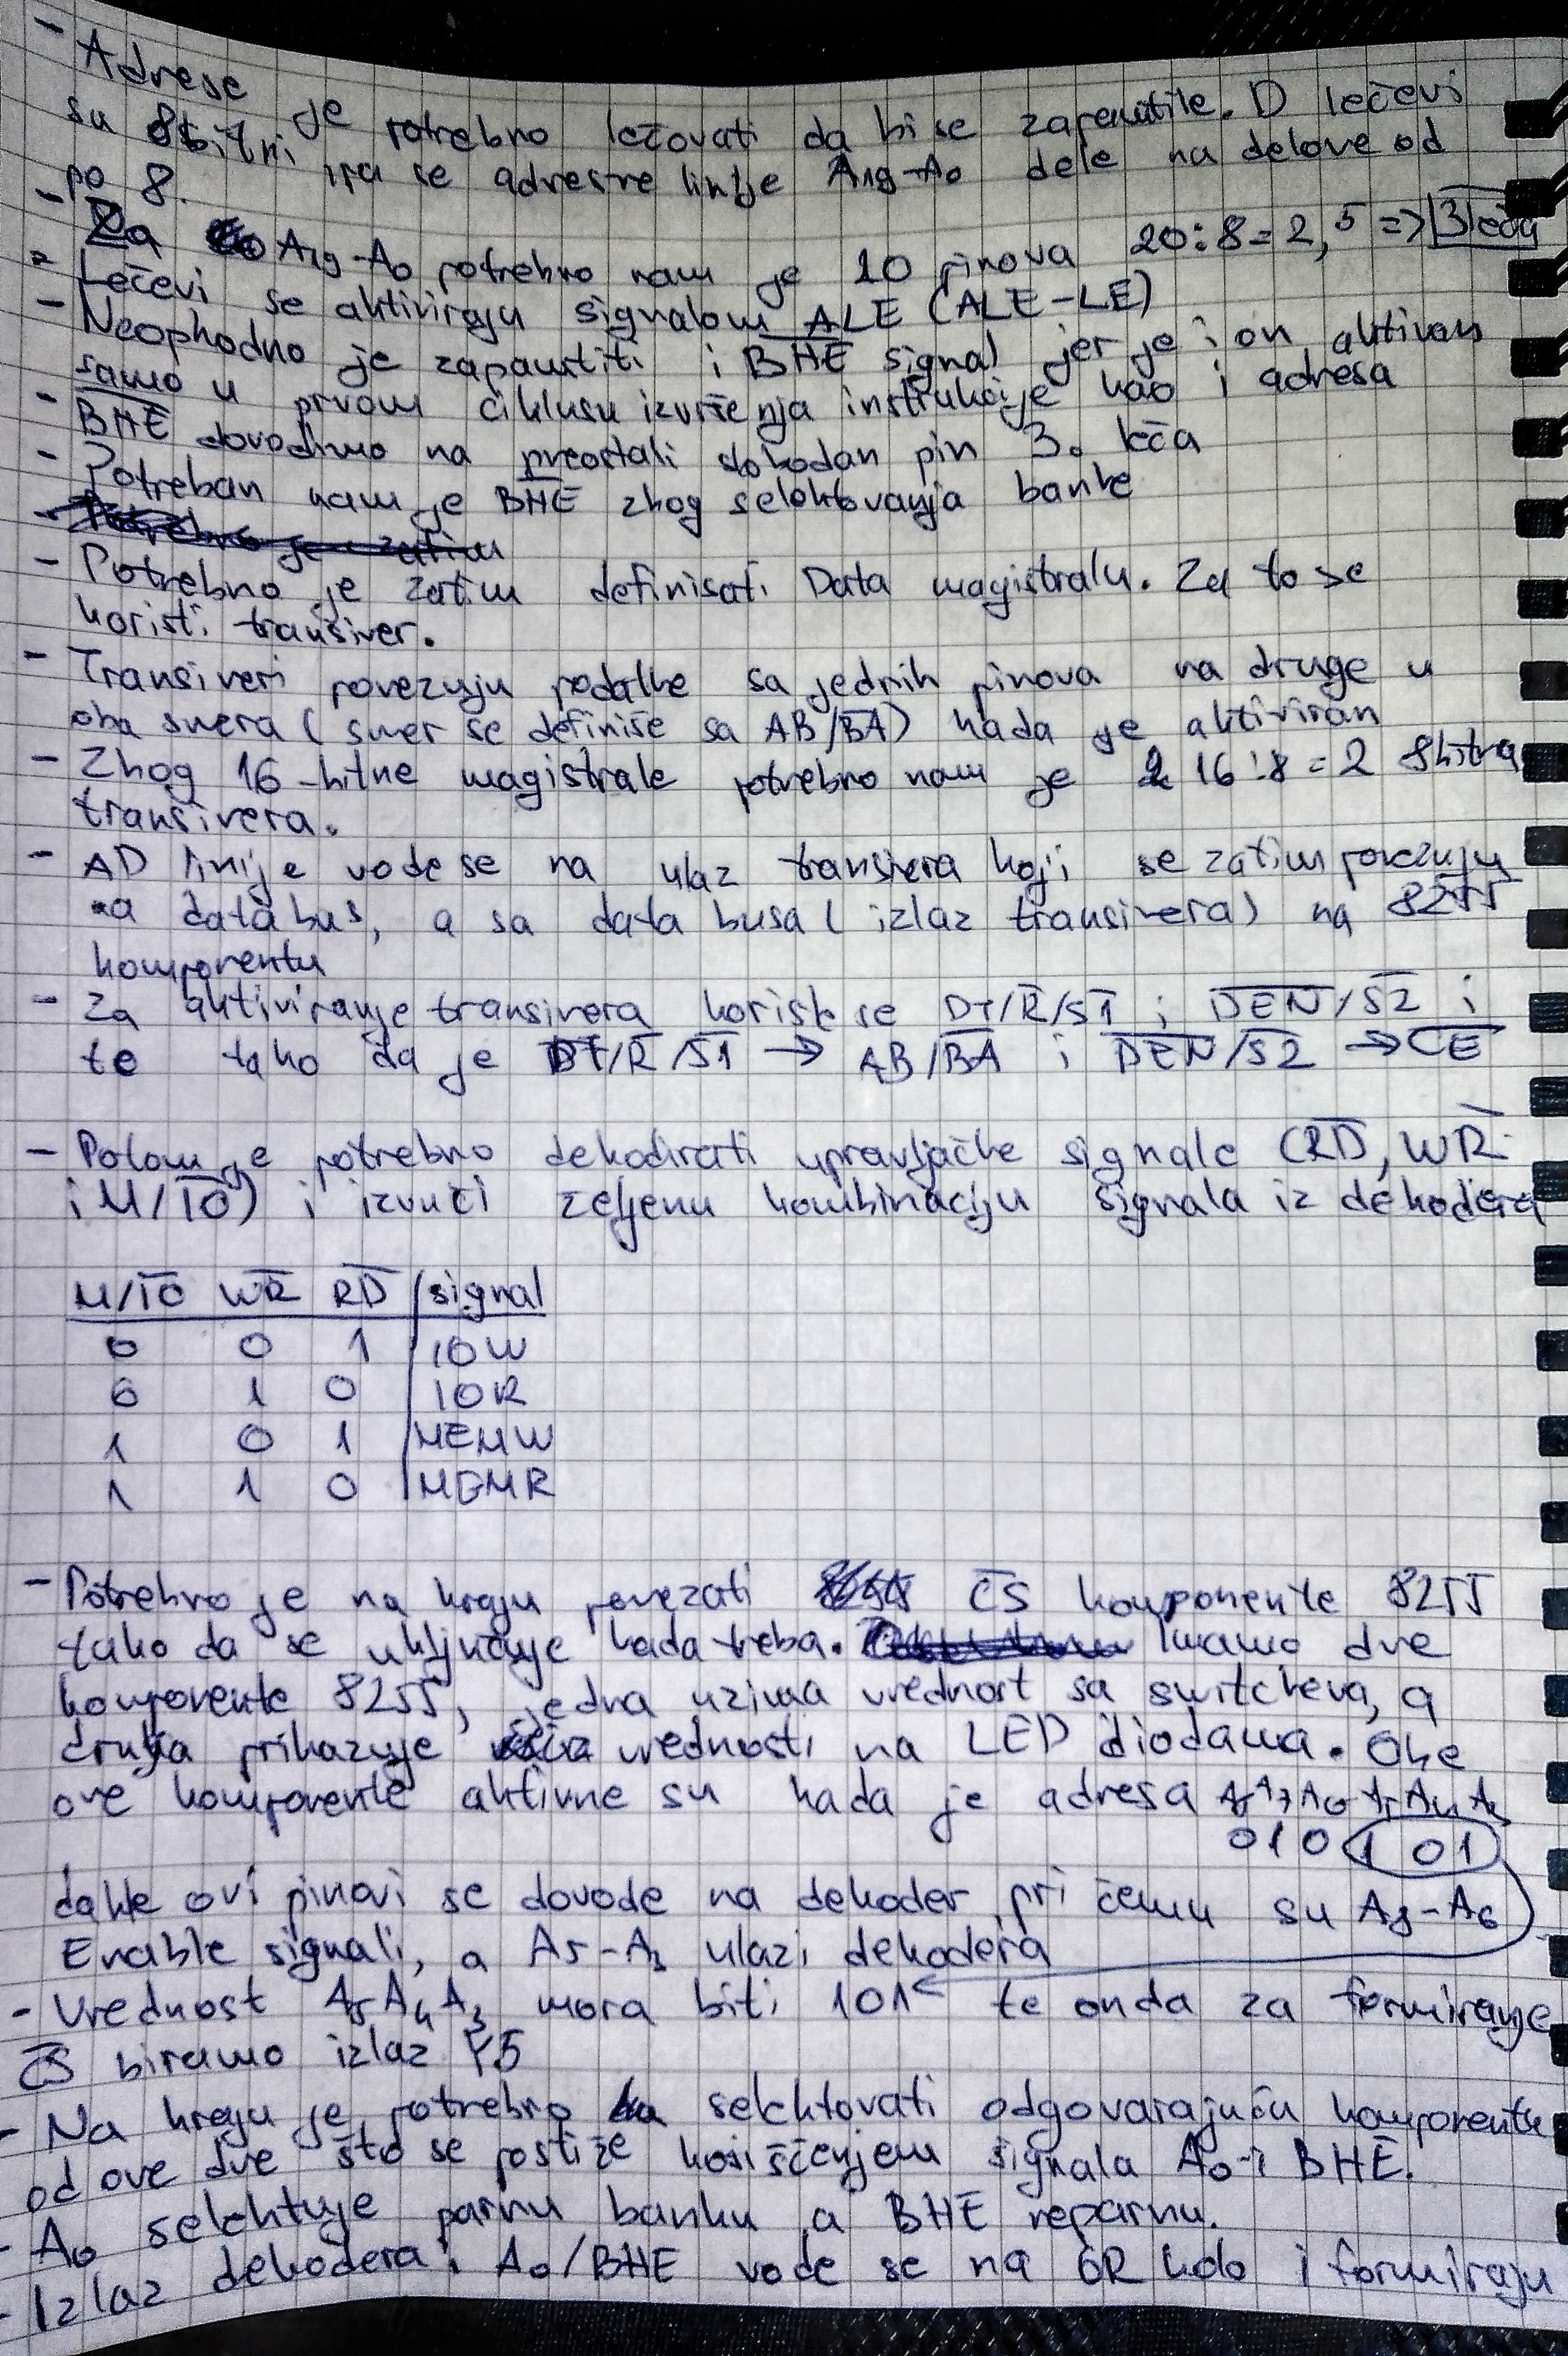 - Adrese je potrebno lečovati da bi se zapamtile. D lečevi
su 8bitni pa se adresne linije A19-A0 dele na delove od
po 8.
- Za A19-A0 potrebno nam je 10 pinova 20:8=2,5 => 3 leča
- Lečevi se aktiviraju signalom ALE (ALE-LE)
- Neophodno je zapamtiti i B̅H̅E̅ signal jer je i on aktivan
samo u prvom ciklusu izvršenja instrukcije kao i adresa
- B̅H̅E̅ dovodimo na preostali slobodan pin 3. leča
- Potreban nam je B̅H̅E̅ zbog selektovanja banke
- Potrebno je zatim definisati Data magistralu. Za to se
koristi transiver.
- Transiveri povezuju podatke sa jednih pinova na druge u
oba smera (smer se definiše sa AB/B̅A̅) kada je aktiviran
- Zbog 16-bitne magistrale potrebno nam je 16:8=2 8bitna
transivera.
- AD linije vode se na ulaz transivera koji se zatim povezuju
na data bus, a sa data busa (izlaz transivera) na 8255
komponentu
- Za aktiviranje transivera koriste se DT/R̅/S̅1̅ i D̅E̅N̅/S̅2̅ i
to tako da je DT/R̅/S̅1̅ → AB/B̅A̅ i D̅E̅N̅/S̅2̅ → C̅E̅
- Potom je potrebno dekodirati upravljačke signale (R̅D̅, W̅R̅
i M/I̅O̅) i izvući željenu kombinaciju signala iz dekodera
M/I̅O̅ W̅R̅ R̅D̅ | signal
0 0 1 | IOW
0 1 0 | IOR
1 0 1 | MEMW
1 1 0 | MEMR
- Potrebno je na kraju povezati C̅S̅ komponente 8255
tako da se uključuje kada treba. Imamo dve
komponente 8255, jedna uzima vrednost sa switcheva, a
druga prikazuje vrednosti na LED diodama. Obe
ove komponente aktivne su kada je adresa A8 A7 A6 A5 A4 A3
010 101
dakle ovi pinovi se dovode na dekoder pri čemu su A8-A6
Enable signali, a A5-A3 ulazi dekodera
- Vrednost A5 A4 A3 mora biti 101 te onda za formiranje
C̅S̅ biramo izlaz Y5
- Na kraju je potrebno selektovati odgovarajuću komponentu
od ove dve što se postiže korišćenjem signala A0 i B̅H̅E̅.
- A0 selektuje parnu banku a BHE neparnu.
- Izlaz dekodera i A0/BHE vode se na OR kolo i formiraju